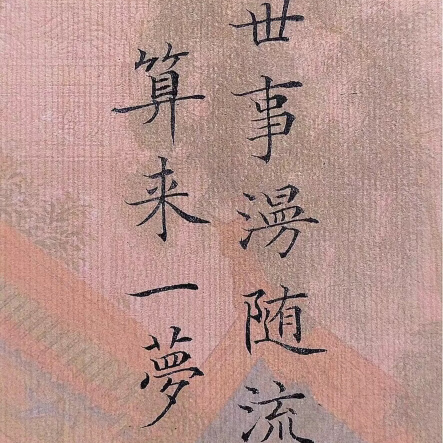 世事漫随流
算来一夢